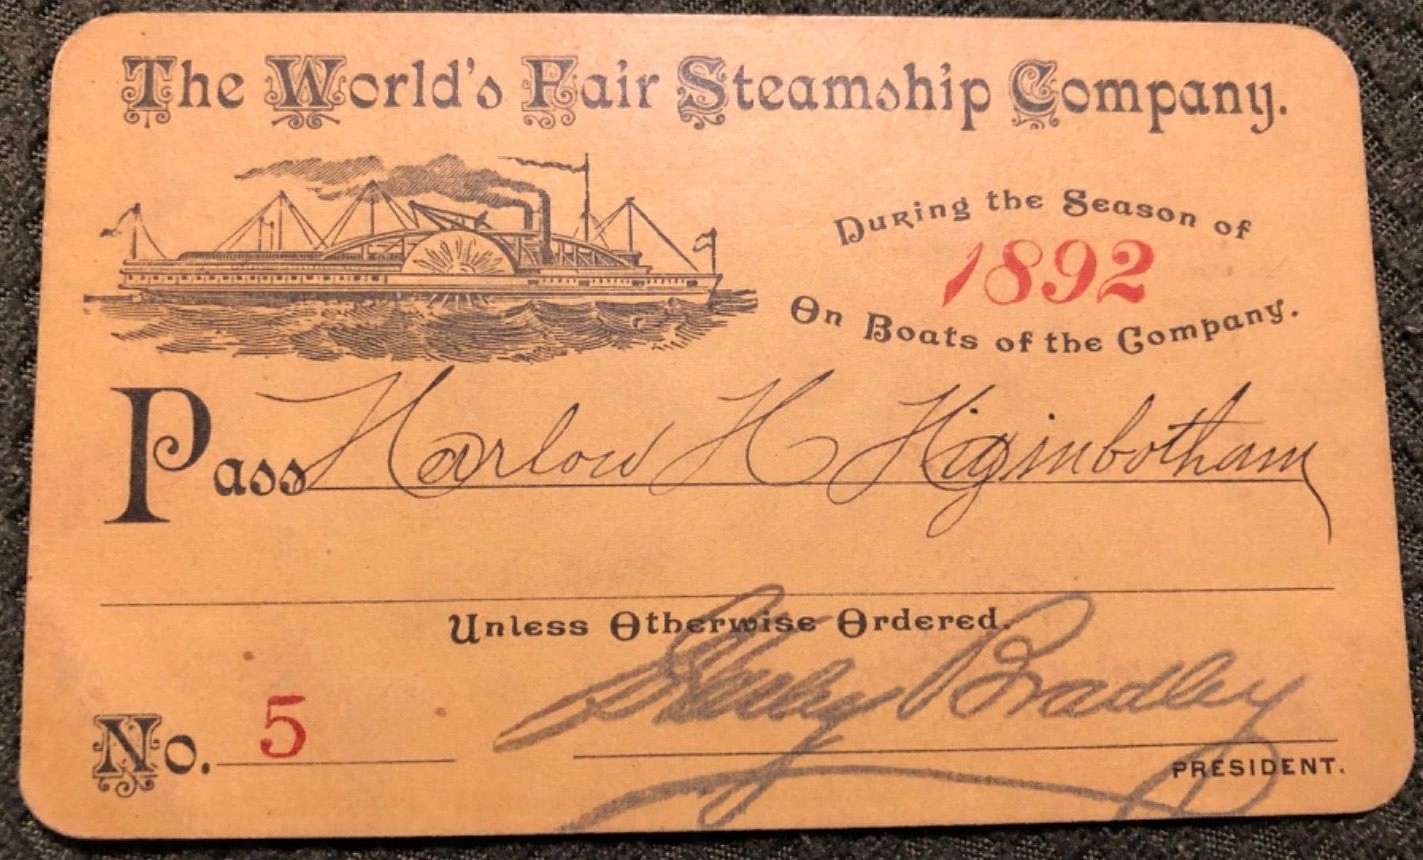 The World's Fair Steamship Company.
During the Season of
1892
On Boats of the Company.
Pass Harlow H Higinbotham
Unless Otherwise Ordered.
No. 5
Bradley
PRESIDENT.